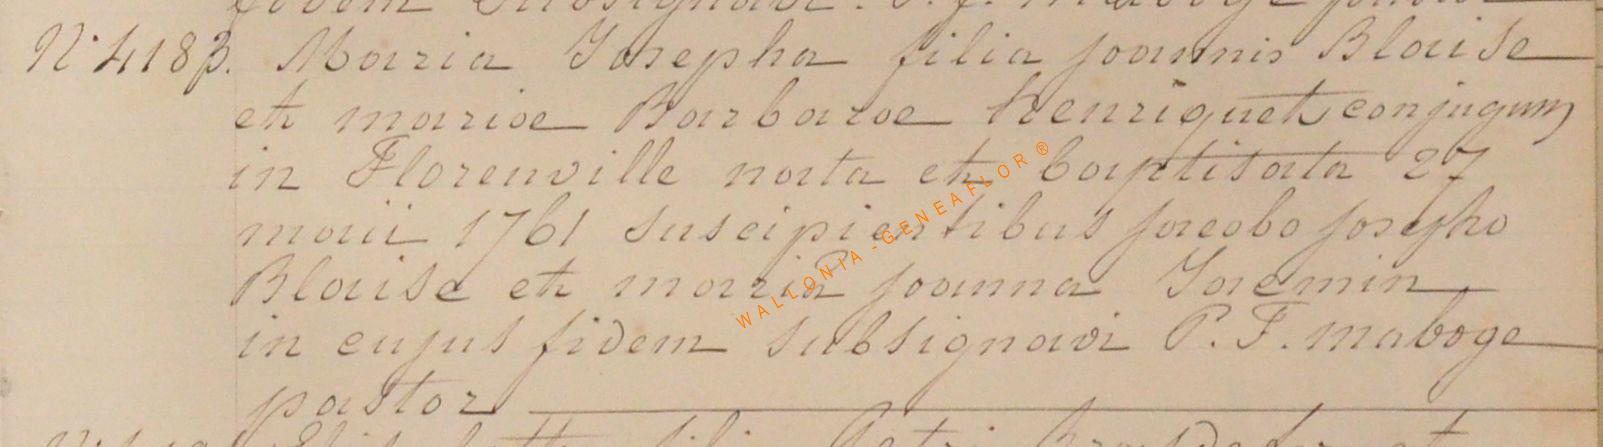 fidem subsignavi. P. F. maboge pastor
N° 4183. Maria Josepha filia joannis Blaise
et mariae Barbarae henriquet conjugum
in Florenville nata et baptisata 27
maii 1761 suscipientibus jacobo josepho
Blaise et maria joanna Jacmin
in cujus fidem subsignavi P. F. maboge
pastor
filia Petri
WALLONIA-GENEAFLOR ®